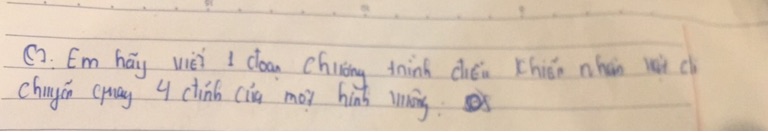 C7: Em hãy viết 1 đoạn chương trình điều khiển nhân vật di
chuyển quay 4 đỉnh của một hình vuông.